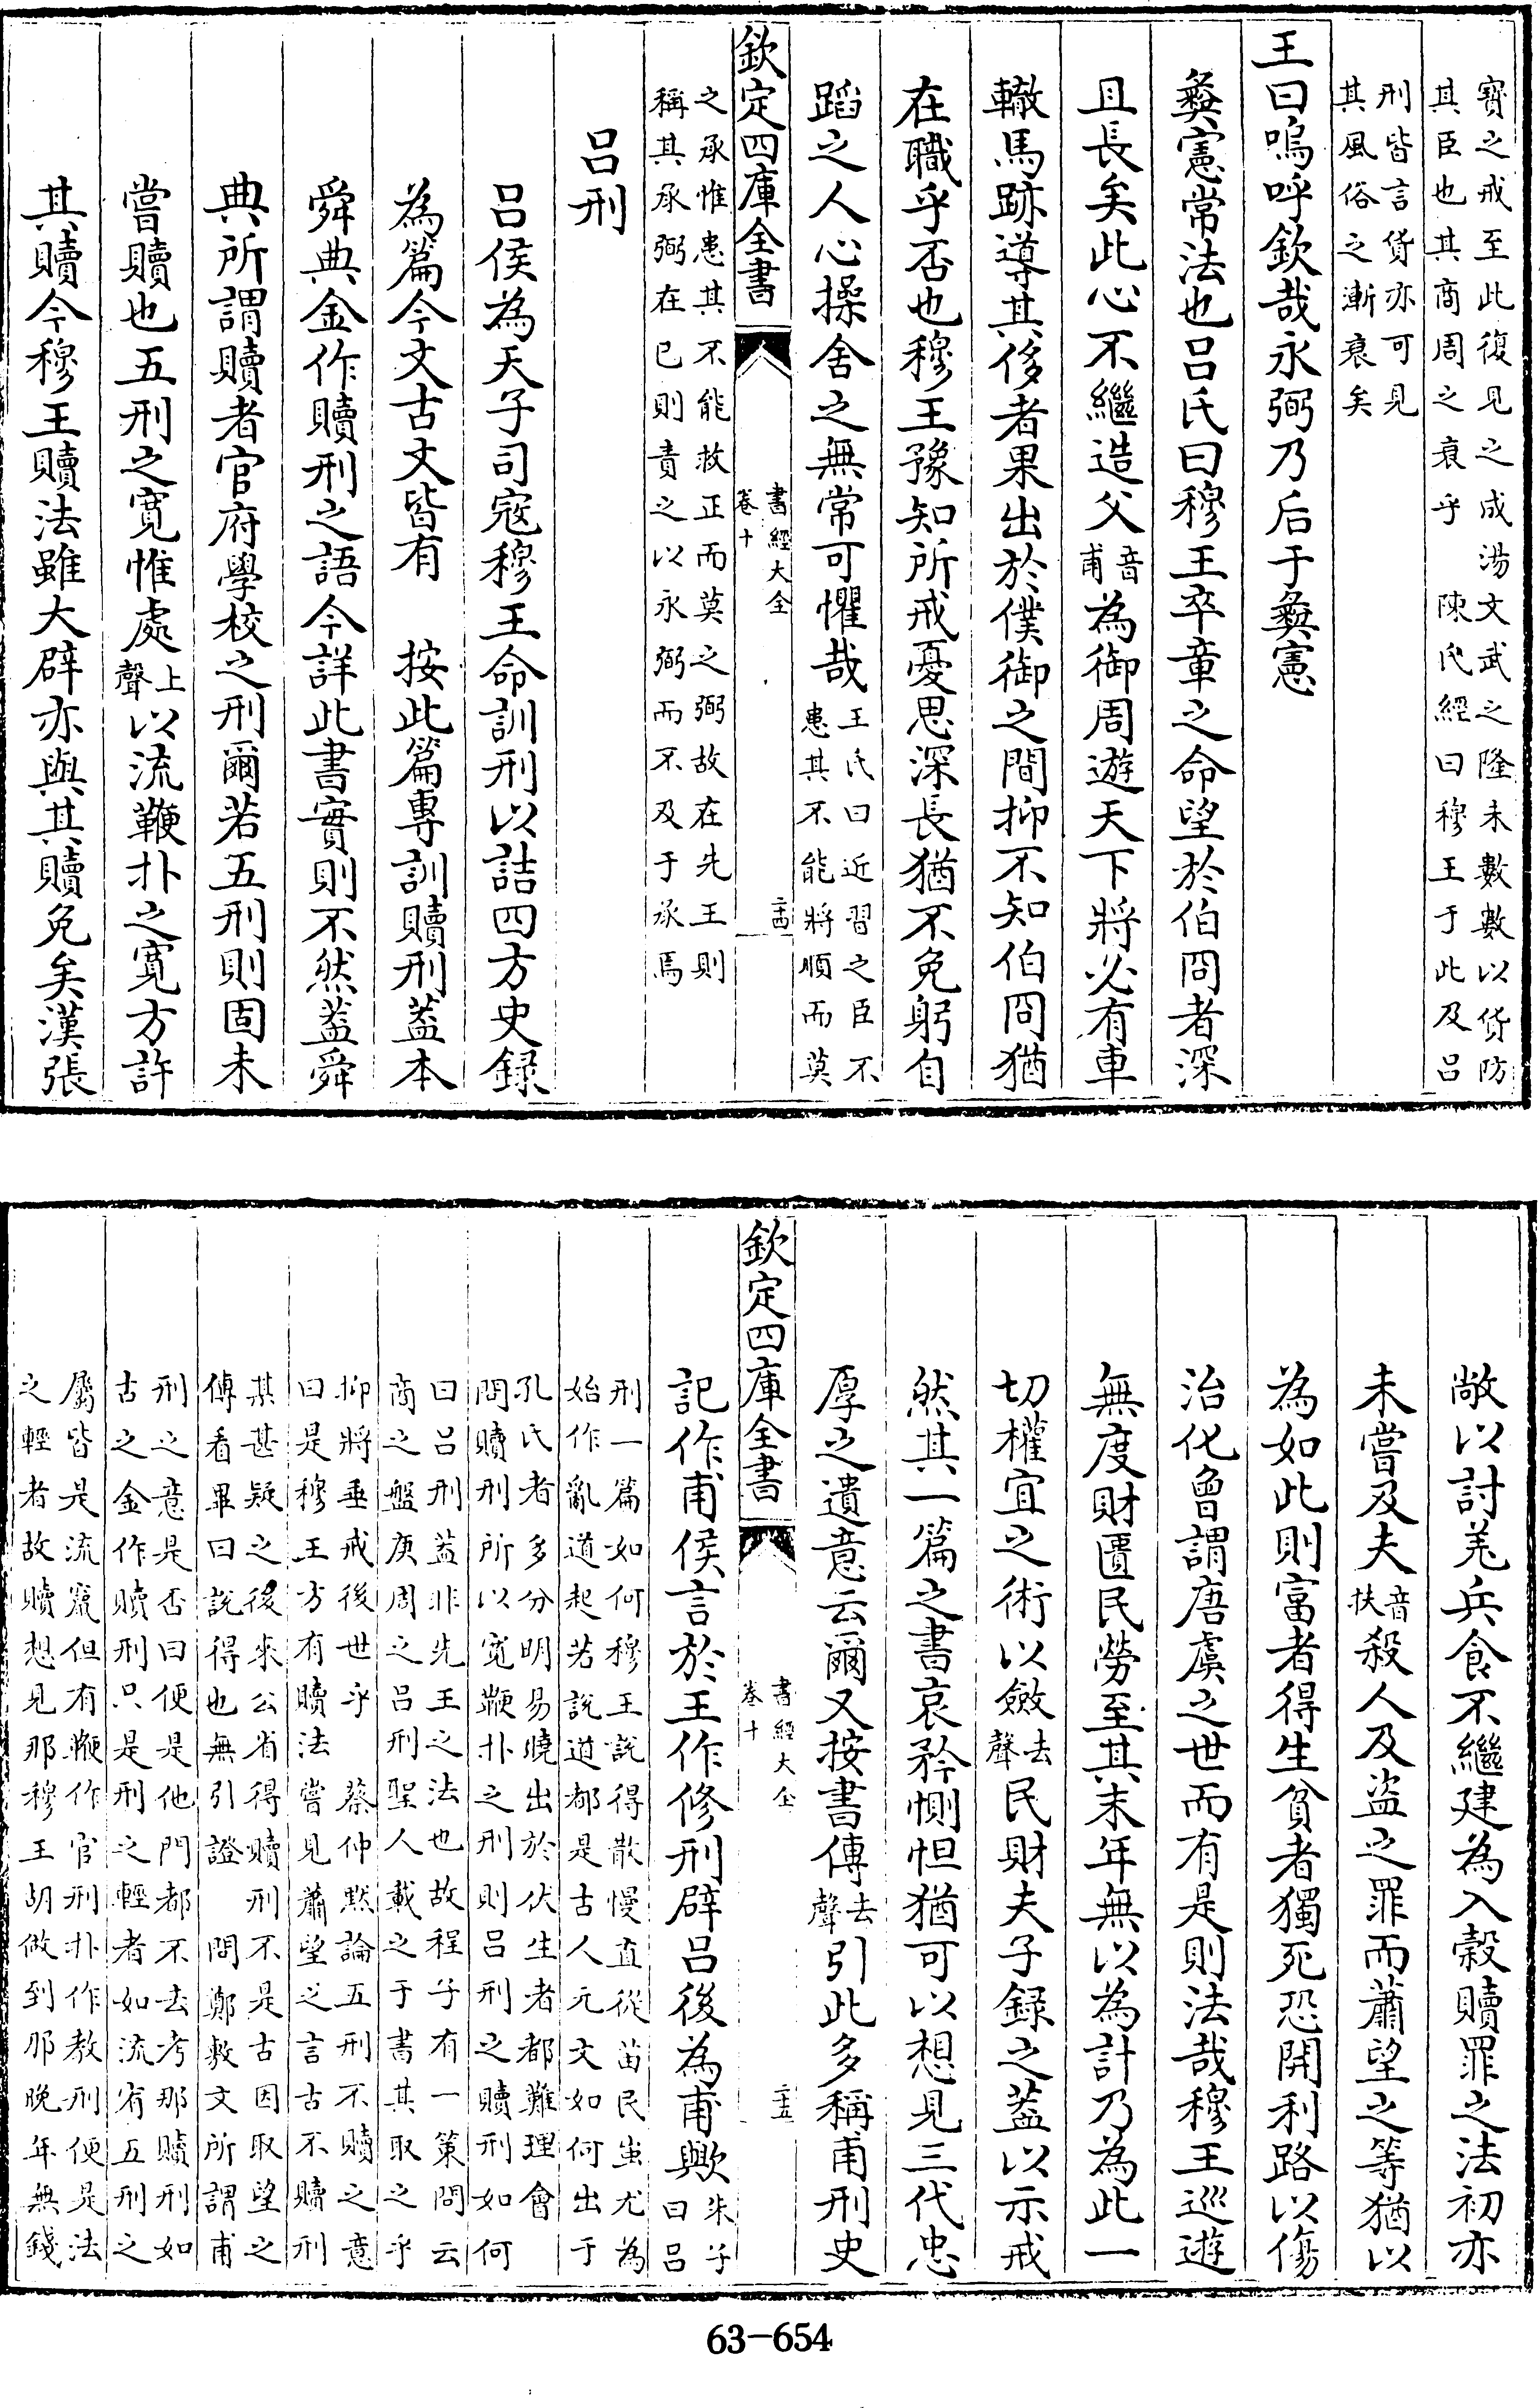 寶之戒至此復見之成湯文武之隆未數數以貨防
其臣也其商周之衰乎　陳氏經曰穆王于此及呂
刑皆言貨亦可見
其風俗之漸衰矣
王曰嗚呼欽哉永弼乃后于彝憲
彝憲常法也呂氏曰穆王卒章之命望於伯冏者深
且長矣此心不繼造父音甫為御周遊天下將必有車
轍馬跡導其侈者果出於僕御之間抑不知伯冏猶
在職乎否也穆王豫知所戒憂思深長猶不免躬自
蹈之人心操舍之無常可懼哉王氏曰近習之臣不
患其不能將順而莫
欽定四庫全書　書經大全　卷十　二十四
之承惟患其不能救正而莫之弼故在先王則
稱其承弼在已則責之以永弼而不及于承焉
呂刑
呂侯為天子司寇穆王命訓刑以詰四方史録
為篇今文古文皆有　按此篇專訓贖刑蓋本
舜典金作贖刑之語今詳此書實則不然蓋舜
典所謂贖者官府學校之刑爾若五刑則固未
嘗贖也五刑之寬惟處上聲以流鞭扑之寬方許
其贖今穆王贖法雖大辟亦與其贖免矣漢張
敞以討羌兵食不繼建為入穀贖罪之法初亦
未嘗及夫音扶殺人及盜之罪而蕭望之等猶以
為如此則富者得生貧者獨死恐開利路以傷
治化曾謂唐虞之世而有是則法哉穆王巡遊
無度財匱民勞至其末年無以為計乃為此一
切權宜之術以斂去聲民財夫子録之蓋以示戒
然其一篇之書哀矜惻怛猶可以想見三代忠
厚之遺意云爾又按書傳去聲引此多稱甫刑史
欽定四庫全書　書經大全　卷十　二十五
記作甫侯言於王作修刑辟呂後為甫歟朱子
曰呂
刑一篇如何穆王說得散慢直從苗民蚩尤為
始作亂道起若說道都是古人元文如何出于
孔氏者多分明易曉出於伏生者都難理會
問贖刑所以寬鞭扑之刑則呂刑之贖刑如何
曰呂刑蓋非先王之法也故程子有一策問云
商之盤庚周之呂刑聖人載之于書其取之乎
抑將垂戒後世乎　蔡仲默論五刑不贖之意
曰是穆王方有贖法嘗見蕭望之言古不贖刑
某甚疑之後來公省得贖刑不是古因取望之
傳看畢曰說得也無引證　問鄭敷文所謂甫
刑之意是否曰便是他門都不去考那贖刑如
古之金作贖刑只是刑之輕者如流宥五刑之
屬皆是流竄但有鞭作官刑扑作教刑便是法
之輕者故贖想見那穆王胡做到那晚年無錢
63-654